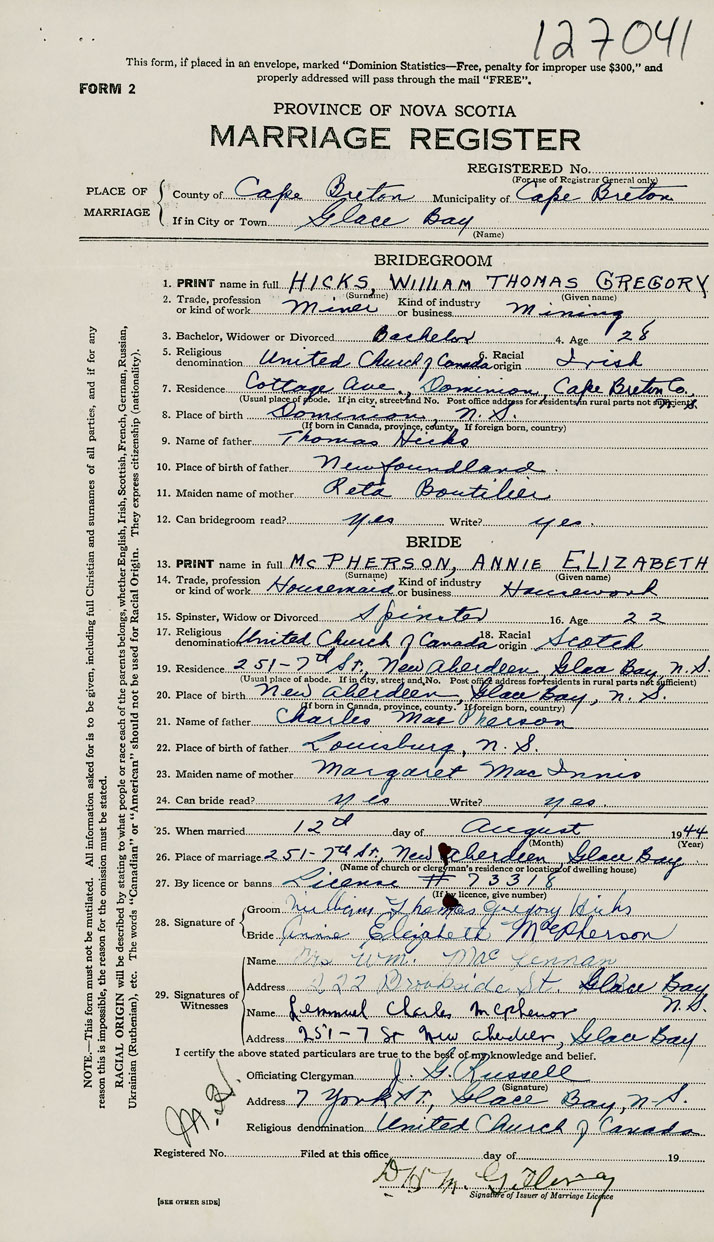 127041
This form, if placed in an envelope, marked "Dominion Statistics—Free, penalty for improper use $300," and
properly addressed will pass through the mail "FREE".
FORM 2
PROVINCE OF NOVA SCOTIA
MARRIAGE REGISTER
REGISTERED No.
(For use of Registrar General only)
PLACE OF MARRIAGE
County of Cape Breton Municipality of Cape Breton
If in City or Town Glace Bay
(Name)
BRIDEGROOM
1. PRINT name in full HICKS, WILLIAM THOMAS GREGORY
(Surname) (Given name)
2. Trade, profession or kind of work Miner Kind of industry or business Mining
3. Bachelor, Widower or Divorced Bachelor 4. Age 28
5. Religious denomination United Church of Canada 6. Racial origin Irish
7. Residence Cottage Ave., Dominion, Cape Breton Co. N.S.
(Usual place of abode. If in city, street and No. Post office address for residents in rural parts not sufficient)
8. Place of birth Dominion, N.S.
(If born in Canada, province, county. If foreign born, country)
9. Name of father Thomas Hicks
10. Place of birth of father Newfoundland.
11. Maiden name of mother Reta Boutilier
12. Can bridegroom read? yes Write? yes.
BRIDE
13. PRINT name in full McPHERSON, ANNIE ELIZABETH
(Surname) (Given name)
14. Trade, profession or kind of work Housemaid Kind of industry or business Housework
15. Spinster, Widow or Divorced Spinster 16. Age 22
17. Religious denomination United Church of Canada 18. Racial origin Scotch
19. Residence 251-7th St., New Aberdeen, Glace Bay, N.S.
(Usual place of abode. If in city, street and No. Post office address for residents in rural parts not sufficient)
20. Place of birth New Aberdeen, Glace Bay, N.S.
(If born in Canada, province, county. If foreign born, country)
21. Name of father Charles MacPherson
22. Place of birth of father Louisburg, N.S.
23. Maiden name of mother Margaret MacInnis
24. Can bride read? yes Write? yes.
25. When married 12th day of August 1944
(Month) (Year)
26. Place of marriage 251-7th St., New Aberdeen, Glace Bay.
(Name of church or clergyman's residence or location of dwelling house)
27. By licence or banns License # 73318
(If by licence, give number)
28. Signature of
Groom William Thomas Gregory Hicks
Bride Annie Elizabeth McPherson
29. Signatures of Witnesses
Name Mrs Wm. MacLennan
Address 222 Brookside St. Glace Bay N.S.
Name Lemmuel Charles McPherson
Address 251-7 St New Aberdeen, Glace Bay
I certify the above stated particulars are true to the best of my knowledge and belief.
Officiating Clergyman J. G. Russell
(Signature)
Address 7 York St., Glace Bay, N-S.
Religious denomination United Church of Canada
Registered No. Filed at this office day of 19
Signature of Issuer of Marriage Licence
[SEE OTHER SIDE]
NOTE.—This form must not be mutilated. All information asked for is to be given, including full Christian and surnames of all parties, and if for any
reason this is impossible, the reason for the omission must be stated.
RACIAL ORIGIN will be described by stating to what people or race each of the parents belongs, whether English, Irish, Scottish, French, German, Russian,
Ukrainian (Ruthenian), etc. The words "Canadian" or "American" should not be used for Racial Origin. They express citizenship (nationality).